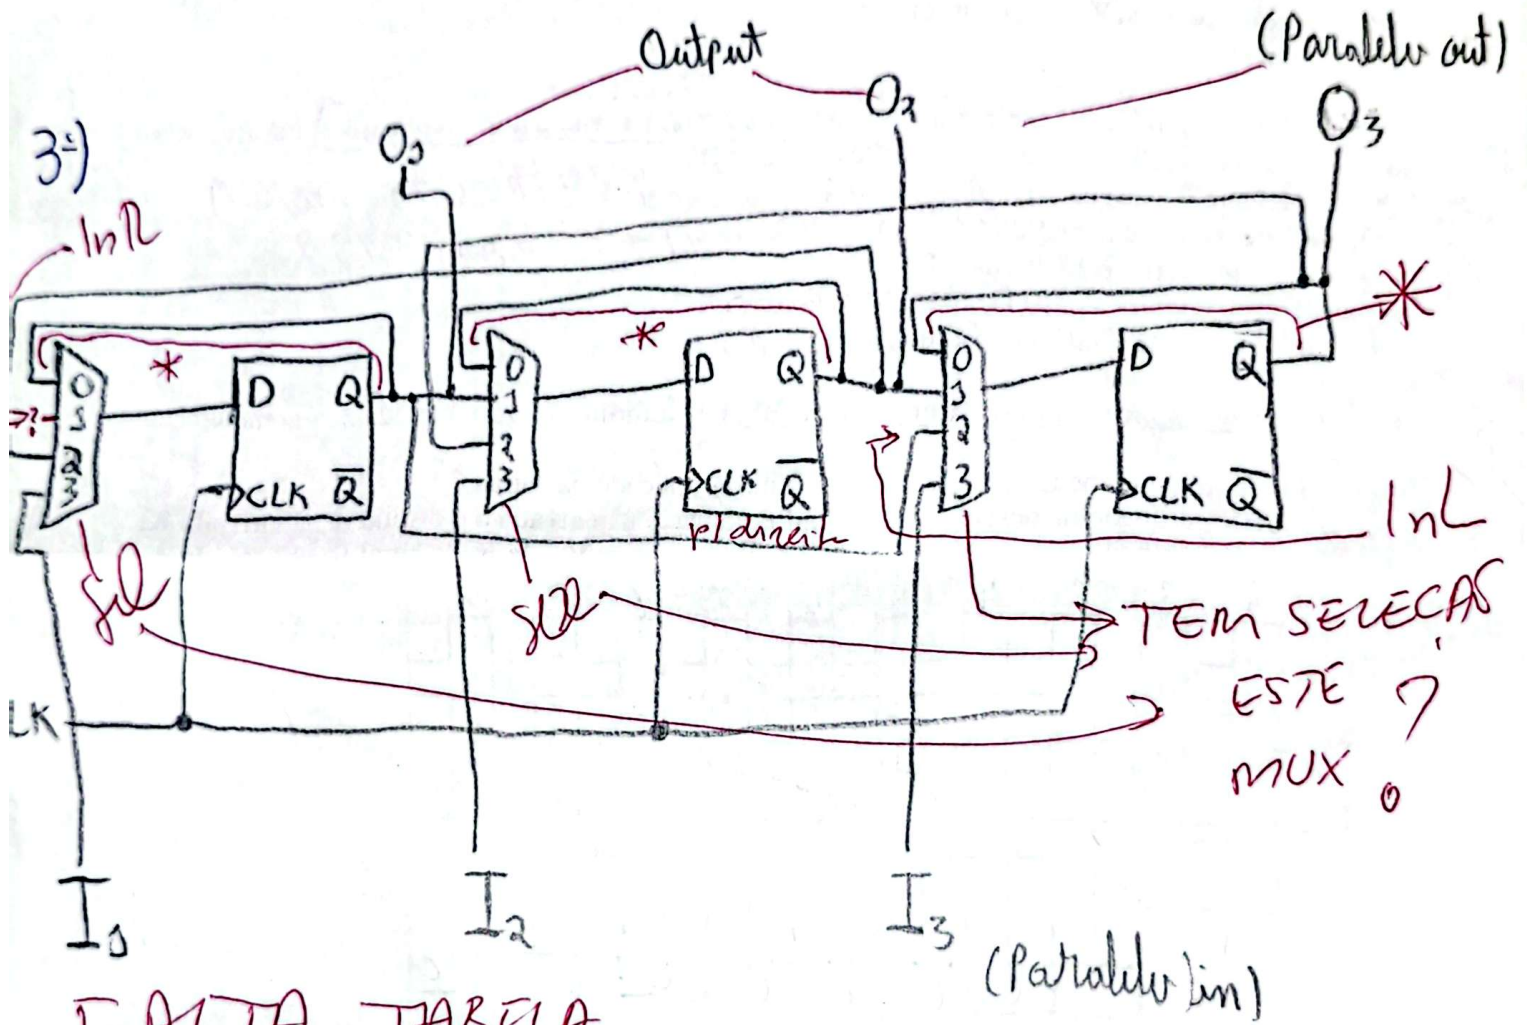 Output
(Paralelo out)
O1
O2
O3
3º)
InR
*
*
*
0
1
2
3
?
D
Q
CLK
Q̅
0
1
2
3
D
Q
CLK
Q̅
p/direita
0
1
2
3
D
Q̅
CLK
Q̅
InL
sel
sel
TEM SELEÇAO
ESTE ?
MUX
LK
I1
I2
I3
(Paralelo in)
FALTA TABELA